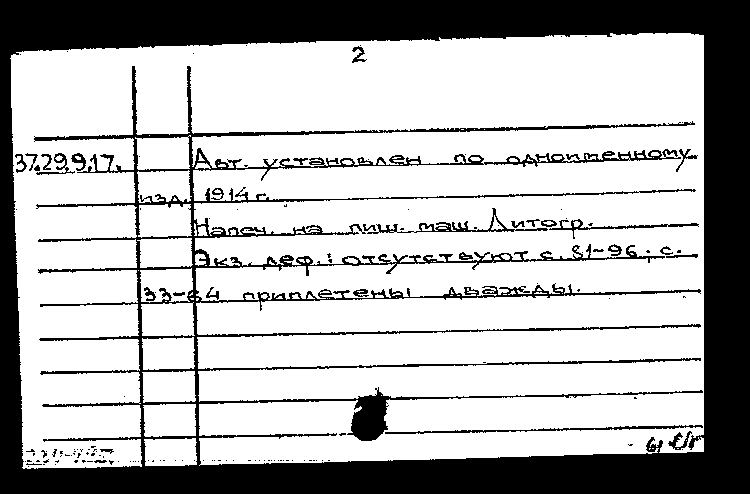 2
37.29.9.17. Авт. установлен по одноименному
изд. 1914 г.
Напеч. на пиш. маш. Литогр.
Экз. деф.: отсутствуют с. 81-96; с.
33-64 приплетены дважды.